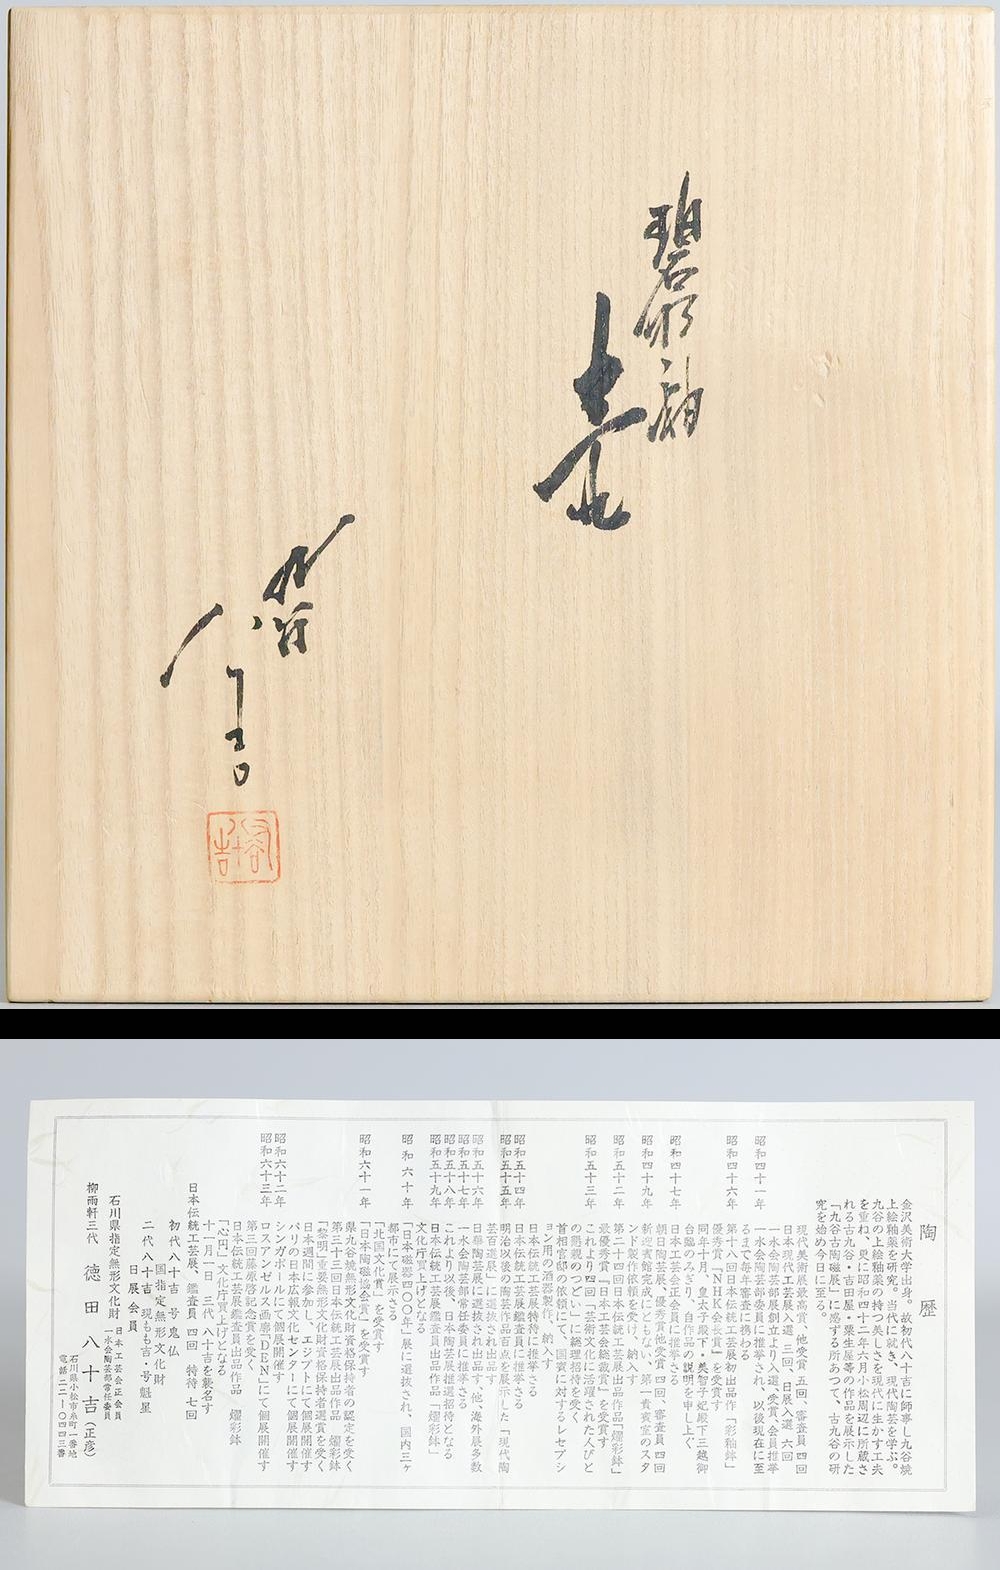 碧明釉
壷
八十吉
陶歴
金沢美術大学出身。故初代八十吉に師事し九谷焼
上絵釉薬を研究。当代に就き、現代陶芸を学ぶ。
九谷の上絵釉薬の持つ美しさを現代に生かす工夫
を重ね、更に昭和四十二年六月小松周辺に所蔵さ
れる古九谷・吉田屋・粟生屋等の作品を展示した
「九谷古陶磁展」に感ずる所あつて、古九谷の研
究を始め今日に至る。
現代美術展最高賞、他受賞 五回、審査員 四回
日本現代工芸展入選 三回、日展入選 六回
昭和四十一年 一水会陶芸部展創立より入選、受賞、会員推挙
一水会陶芸部委員に推挙され、以後現在に至
るまで毎年審査に携わる
昭和四十六年 第十八回日本伝統工芸展初出品作「彩釉鉢」
優秀賞「NHK会長賞」を受賞す
同年十月、皇太子殿下・美智子妃殿下三越御
台臨のみぎり、自作品の説明を申し上ぐ
昭和四十七年 日本工芸会正会員に推挙さる
朝日陶芸展、優秀賞他受賞 四回、審査員 四回
昭和四十九年 新迎賓館完成にともない、第一貴賓室のスタ
ンド製作依頼を受け、納入す
昭和五十二年 第二十四回日本伝統工芸展出品作品「燿彩鉢」
最優秀賞「日本工芸会総裁賞」を受賞す
昭和五十三年 これより四回「芸術文化に活躍された人びと
の懇親のつどい」に総理招待を受く
首相官邸の依頼にて、国賓に対するレセプシ
ョン用の酒器製作、納入す
日本伝統工芸展特待に推挙さる
昭和五十四年 日本伝統工芸展鑑査員に推挙さる
昭和五十五年 明治以後の陶芸作品百点を展示した「現代陶
芸百選展」に選抜され出品す
昭和五十六年 日華陶芸展に選抜され出品す、他、海外展多数
昭和五十七年 一水会陶芸部常任委員に推挙さる
昭和五十八年 これより以後、日本陶芸展推選招待となる
昭和五十九年 日本伝統工芸展鑑査員出品作品「燿彩鉢」
文化庁買上げとなる
昭和六十年 「日本磁器四〇〇年」展に選抜され、国内三ヶ
都市にて展示さる
「北国文化賞」を受賞す
「日本陶磁協会賞」を受賞す
昭和六十一年 県九谷焼無形文化財資格保持者の認定を受く
第三十三回日本伝統工芸展出品作品 燿彩鉢
「黎明」重要無形文化財資格保持者選賞を受く
日本週間に参加し、エジプトにて個展開催す
パリの日本広報文化センターにて個展開催す
昭和六十二年 シンガポールにて個展開催す
昭和六十三年 ロスアンゼルス画廊「DEN」にて個展開催す
第三回藤原啓記念賞を受く
日本伝統工芸展鑑査員出品作品 燿彩鉢
「心円」文化庁買上げとなる
十一月一日 三代 八十吉を襲名す
日本伝統工芸展、鑑査員 四回 特待 七回
初代 八十吉 号 鬼仏
国指定無形文化財
二代 八十吉 現もも吉・号 魁星
日展会員
石川県指定無形文化財 日本工芸会正会員
一水会陶芸部常任委員
柳雨軒三代 徳田八十吉(正彦)
石川県小松市糸町一番地
電話二二-〇四四三番